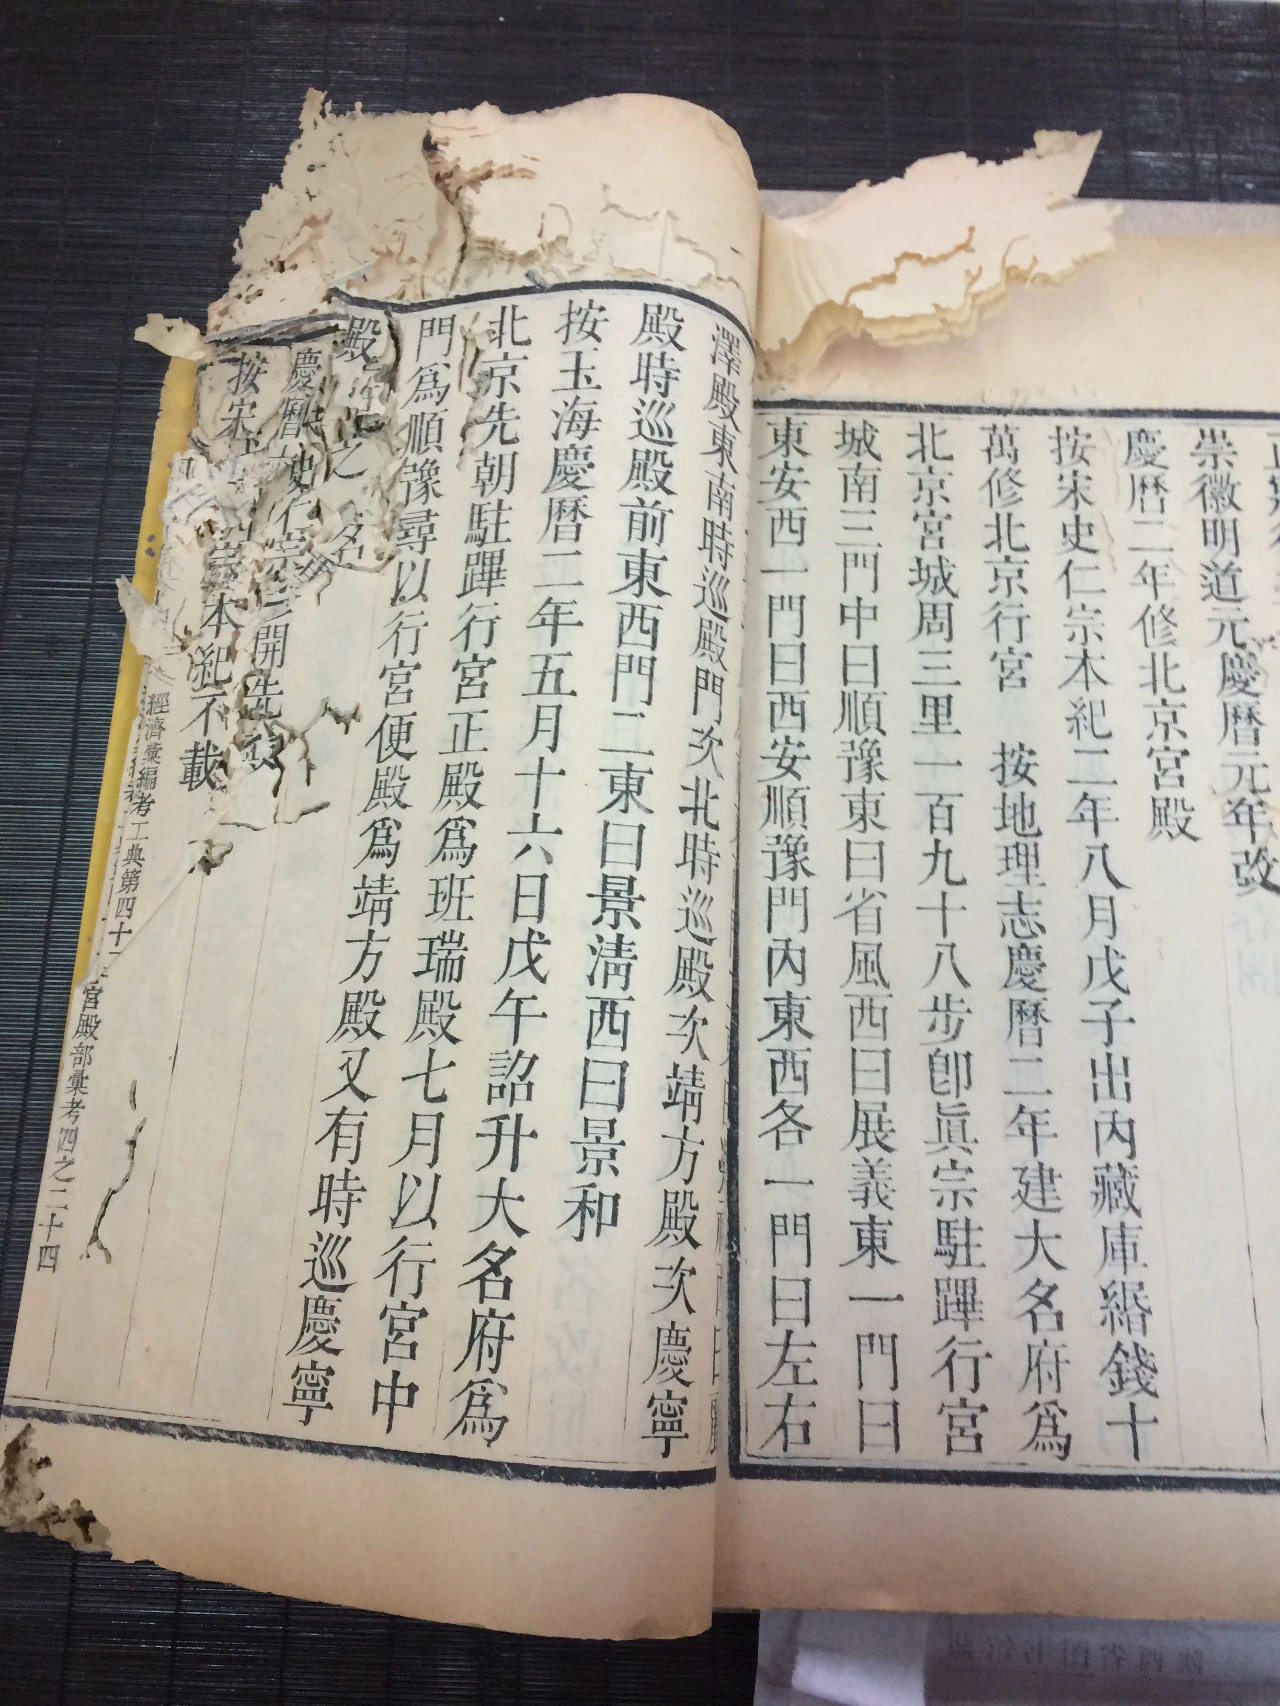 崇徽明道元慶曆元年改
慶曆二年修北京宮殿
按宋史仁宗本紀二年八月戊子出內藏庫緡錢十
萬修北京行宮　按地理志慶曆二年建大名府爲
北京宮城周三里一百九十八步卽眞宗駐蹕行宮
城南三門中曰順豫東曰省風西曰展義東一門曰
東安西一門曰西安順豫門內東西各一門曰左右
澤殿東南時巡殿門次北時巡殿次靖方殿次慶寧
殿時巡殿前東西門二東曰景清西曰景和
按玉海慶曆二年五月十六日戊午詔升大名府爲
北京先朝駐蹕行宮正殿爲班瑞殿七月以行宮中
門爲順豫尋以行宮便殿爲靖方殿又有時巡慶寧
殿之名
慶曆開先
按宋史本紀不載
經濟彙編考工典第四十 宮殿部彙考四之二十四
陝西省图书馆藏